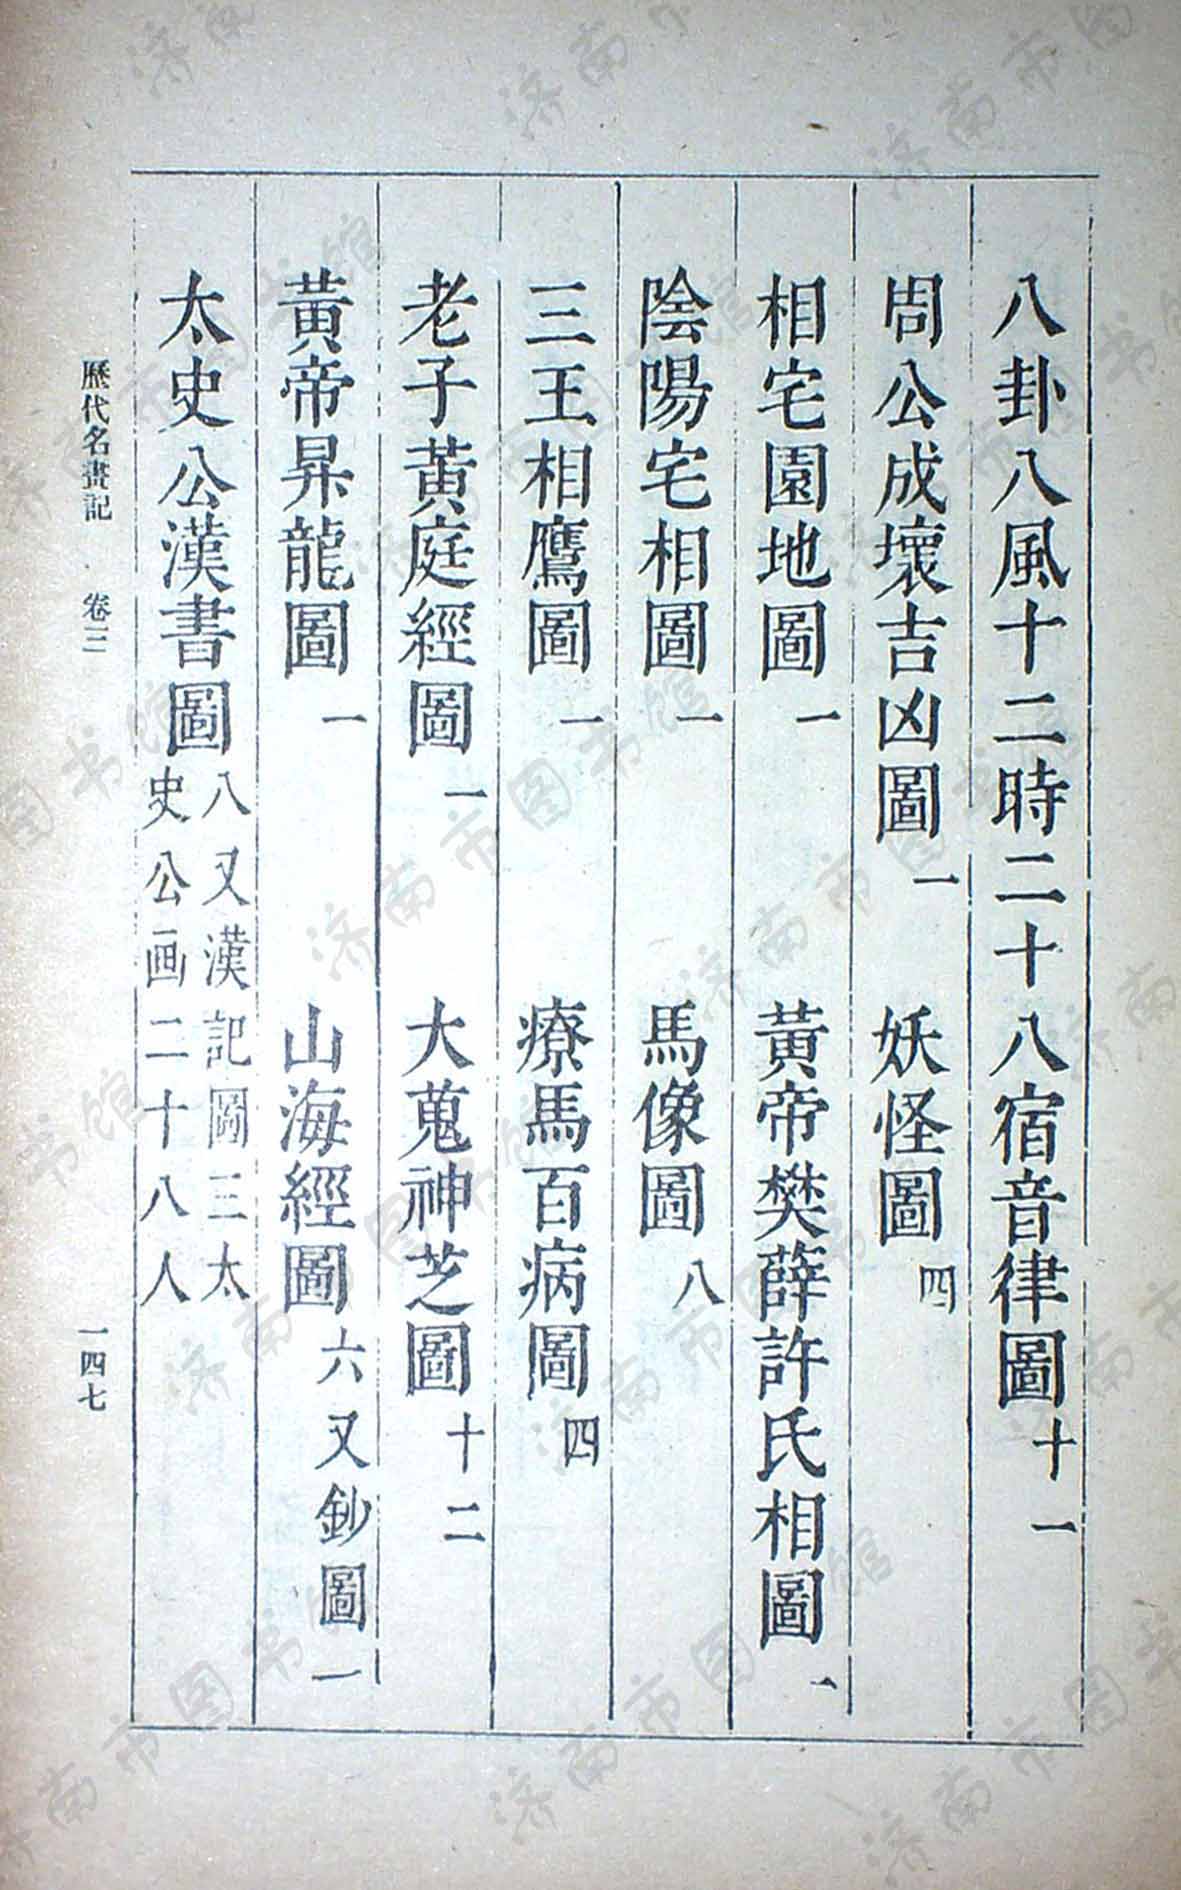 八卦八風十二時二十八宿音律圖十一
周公成壞吉凶圖一 妖怪圖四
相宅園地圖一 黃帝樊薛許氏相圖一
陰陽宅相圖一 馬像圖八
三王相鷹圖一 療馬百病圖四
老子黃庭經圖一 大蒐神芝圖十二
黃帝昇龍圖一 山海經圖六又鈔圖一
太史公漢書圖八又漢記圖三太
史公画二十八人
歷代名畫記 卷三 一四七
济南市图书馆